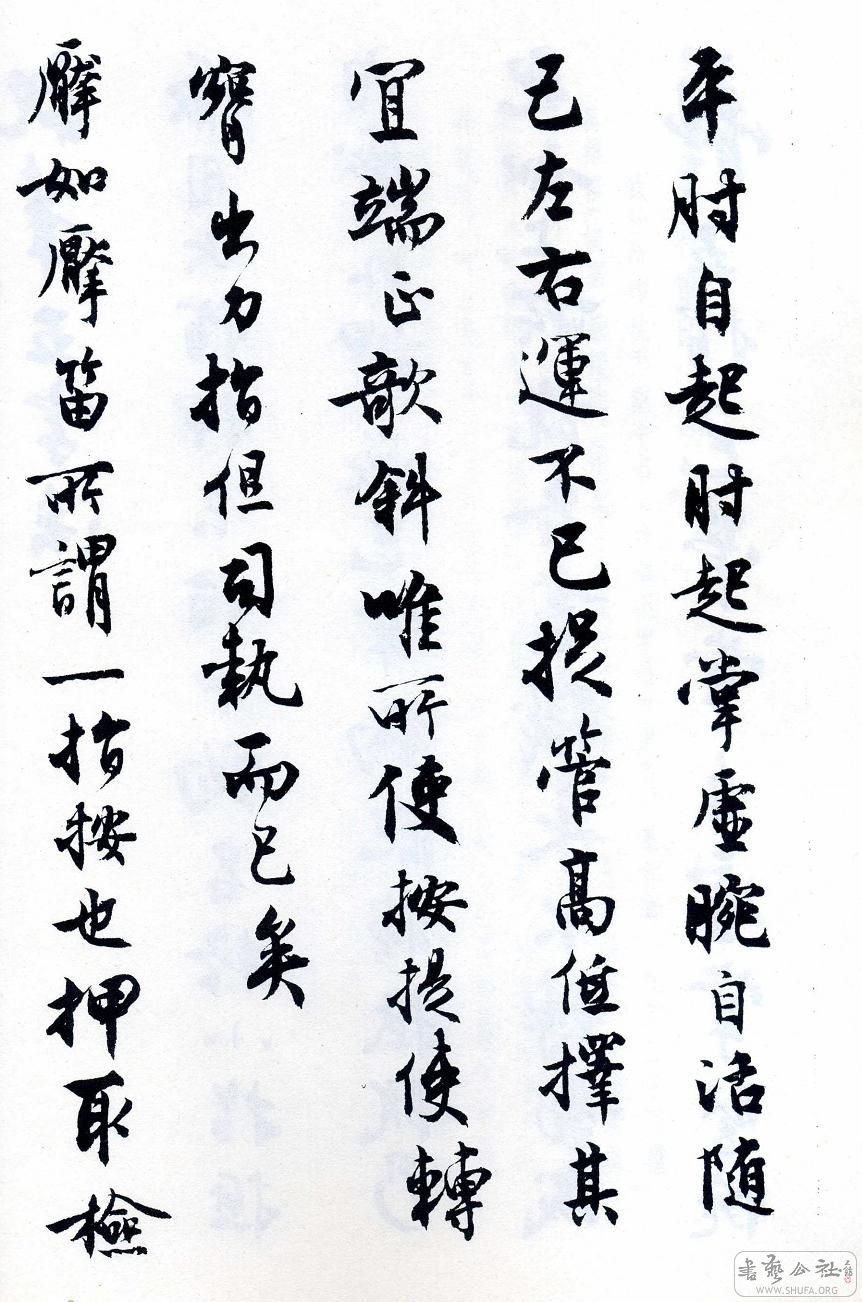 平肘自起肘起掌虛腕自活随
己左右運不已捉管高低擇其
宜端正欹斜唯所使按提使轉
出力指但司執而已矣
擪如擪笛所謂一指按也押取檢
書藝公社
WWW.SHUFA.ORG